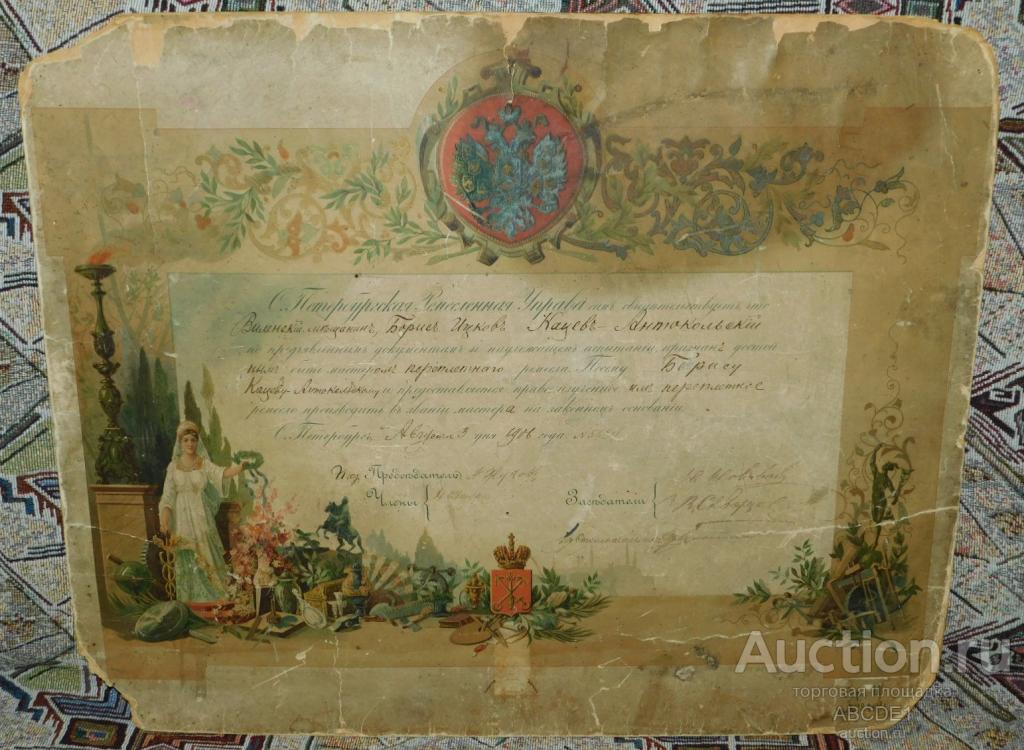 С. Петербургская Ремесленная Управа симъ свидѣтельствуетъ что
Виленскій мѣщанинъ, Борисъ Ицковъ Кацевъ-Антокольскій
по предъявленнымъ документамъ и надлежащемъ испытаніи, признанъ достой
нымъ быть мастеромъ переплетнаго ремесла. Посему Борису
Кацеву-Антокольскому и предоставляется право изученное имъ переплетное
ремесло производить въ званіи мастера на законномъ основаніи.
С. Петербургъ Августа 3 дня 1906 года. №
Предсѣдатель
Члены { Засѣдатели {
Auction.ru
торговая площадка
ABCDE1
auction.ru